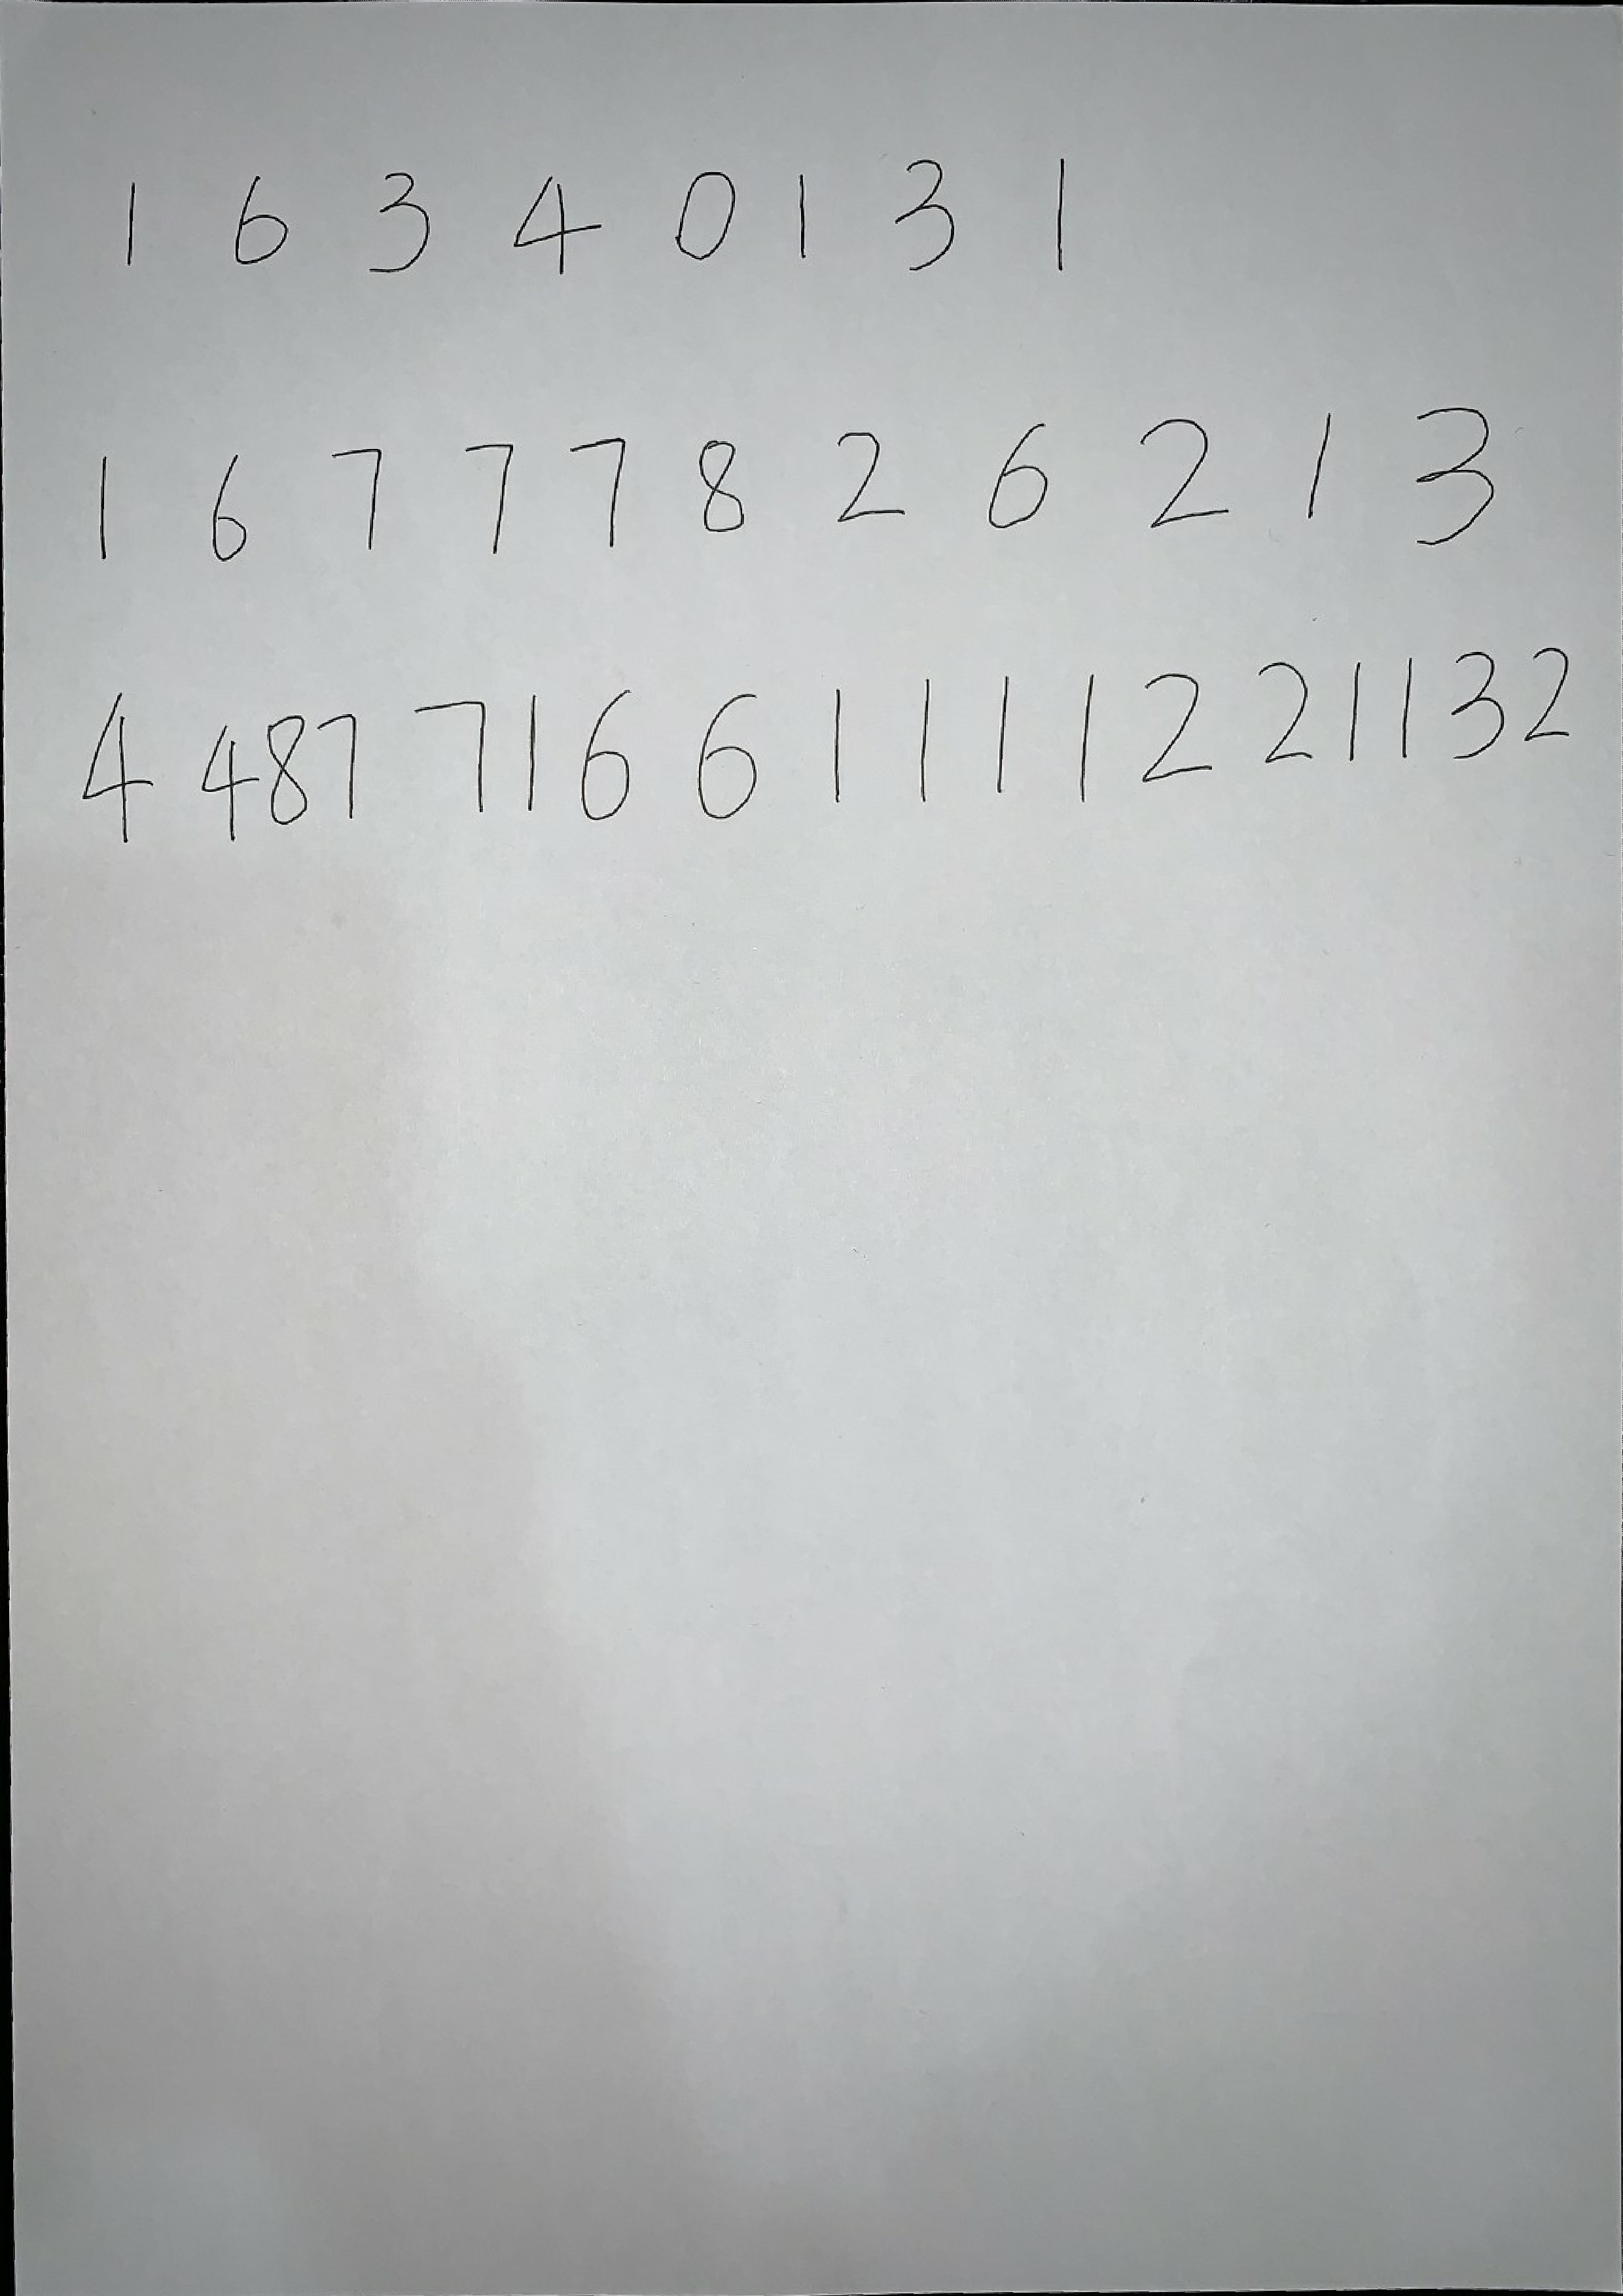 1 6 3 4 0 1 3 1
1 6 7 7 7 8 2 6 2 1 3
4 487 716 6 1 1 1 1 2 21132